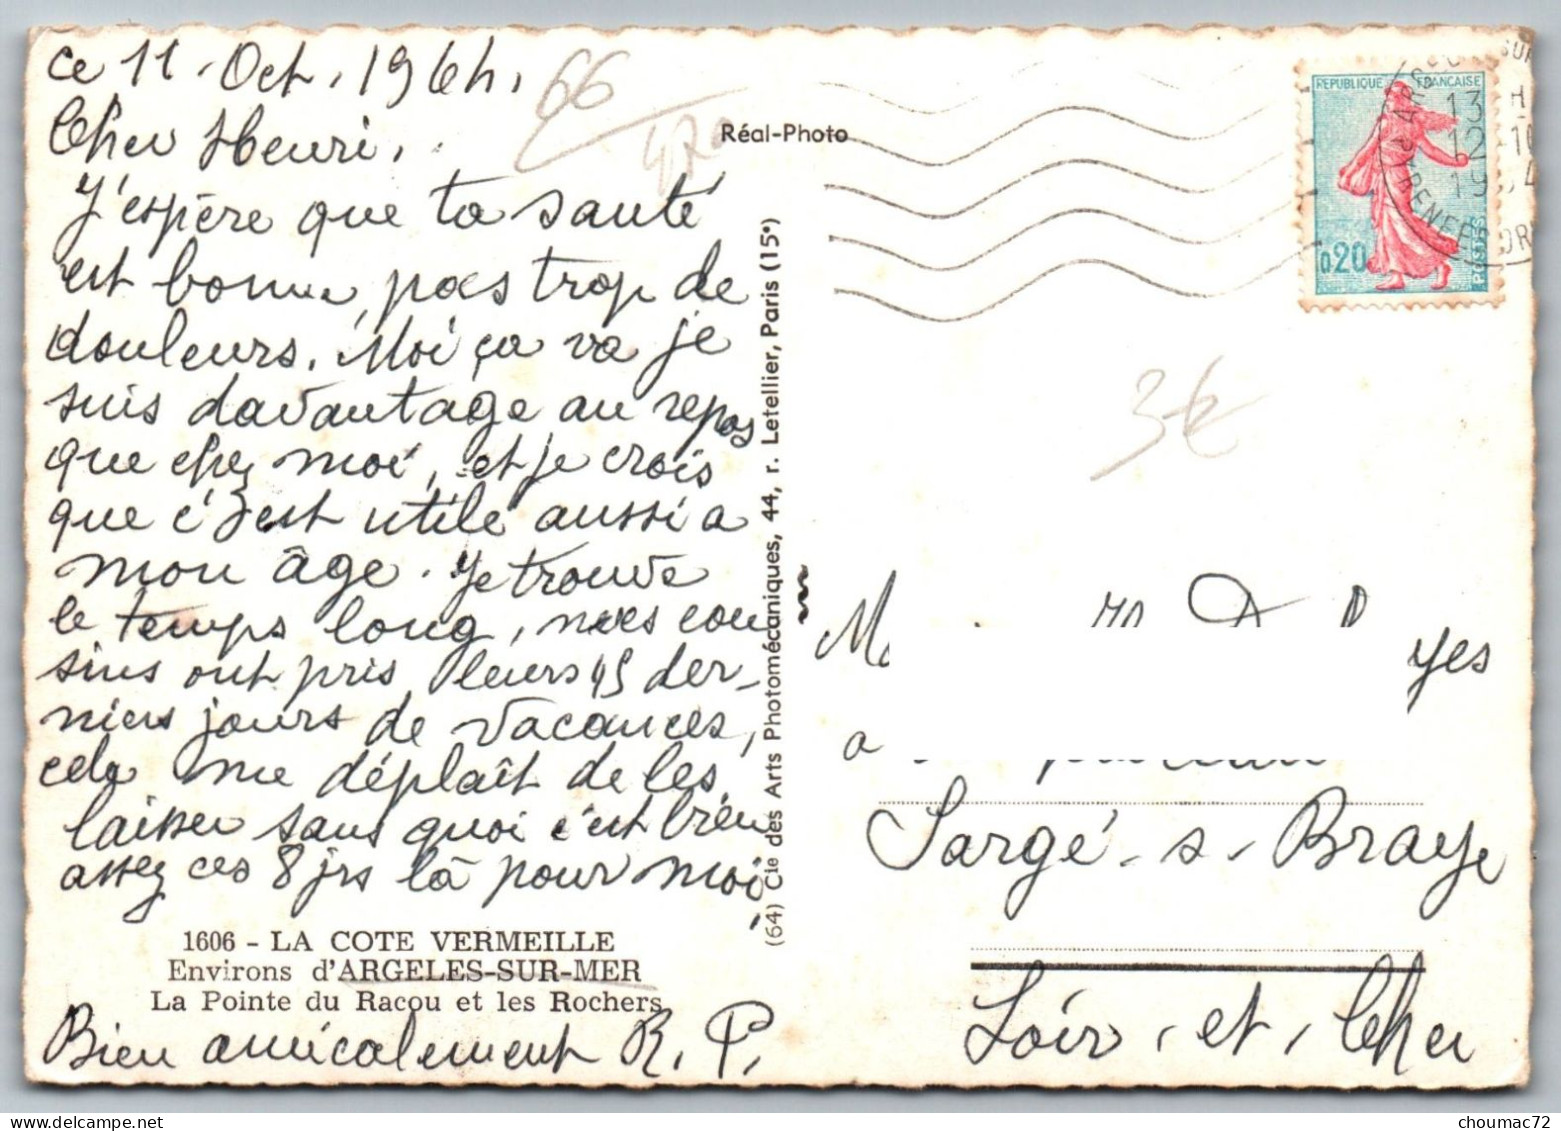 ce 11. Oct. 1964.
Cher Henri,
J'espère que ta santé
est bonne, pas trop de
douleurs. Moi ça va je
suis davantage au repos
que chez moi, et je crois
que c'est utile aussi a
mon âge. Je trouve
le temps long, mes cou
sins ont pris leurs 15 der-
niers jours de vacances,
cela me déplaît de les
laisser sans quoi c'est bien
assez ces 8 jrs là pour moi,
1606 - LA COTE VERMEILLE
Environs d'ARGELES-SUR-MER
La Pointe du Racou et les Rochers
Bien amicalement R. P.
66
Réal-Photo
(64) Cie des Arts Photomécaniques, 44, r. Letellier, Paris (15e)
REPUBLIQUE FRANÇAISE
0,20
POSTES
13 H
12-10
PYRENEES OR
3€
yes
a
Sargé-s-Braye
Loir-et-Cher
choumac72